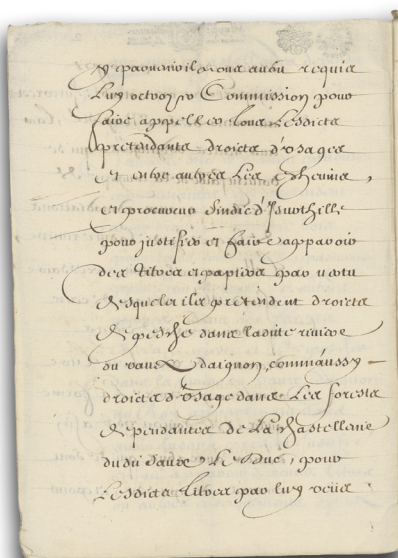 luy octroyer Commission pour
faire appeller tous Lesdicts
pretendants droicts d'usages
et entre autres Les Eschevins,
et procureur sindic d'Isurthille
pour justifier et faire apparoir
des titres et papiers par vertu
desquels ils pretendent droicts
de pesche dans ladite riviere
du vau d'aignon, comm'aussy
droicts d'usage dans Les forests
dependantes de La chastellenie
dudit Saulx Le Duc, pour
Lesdicts titres par luy veus